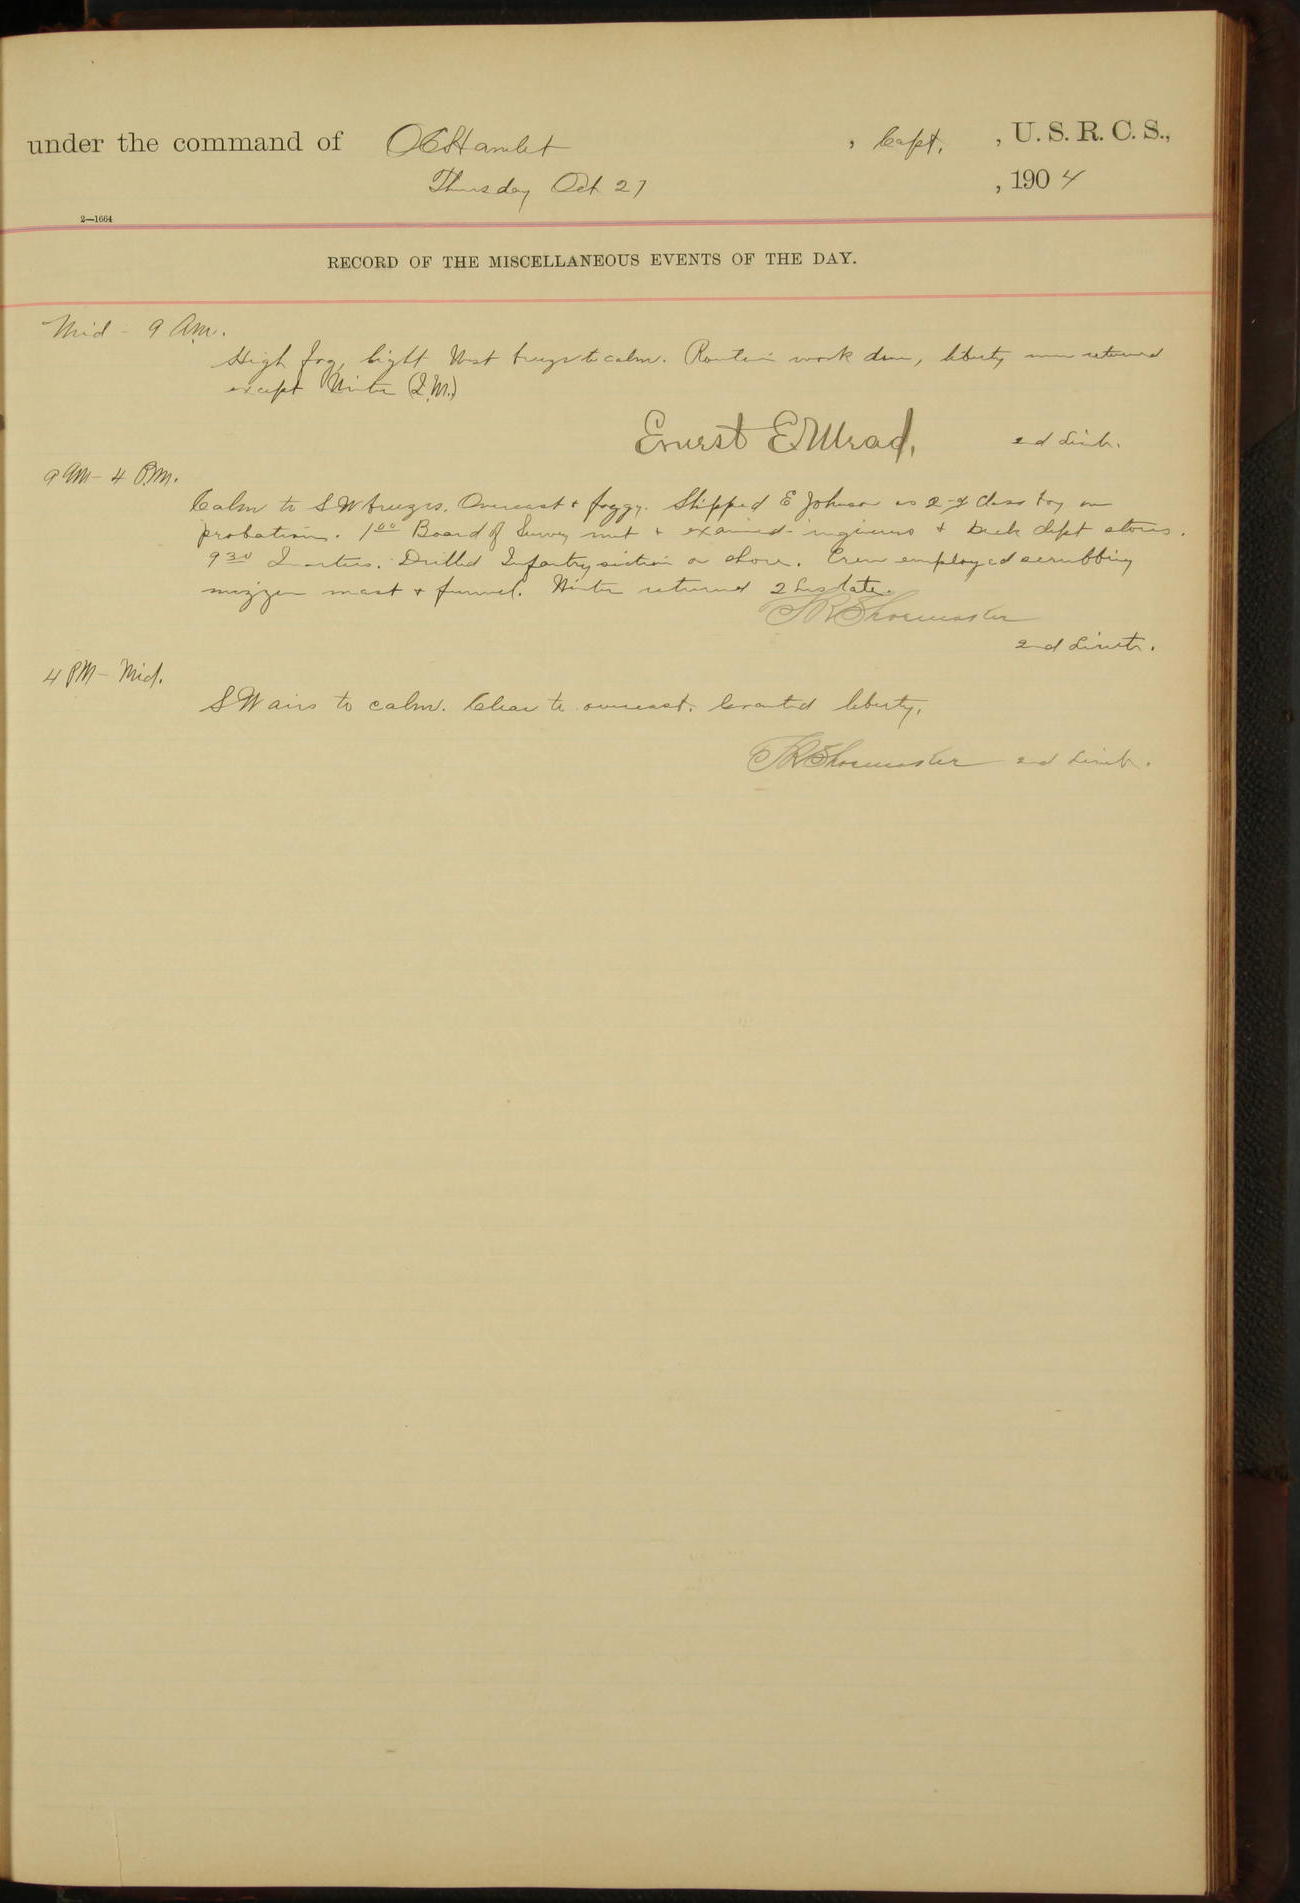 under the command of O C Hamlet , Capt. , U. S. R. C. S.,
Thursday Oct 27 , 1904
2—1664
RECORD OF THE MISCELLANEOUS EVENTS OF THE DAY.
Mid - 9 A.M.
High fog, light West breeze to calm. Routine work done, liberty men returned
except Winter (2.M.)
Ernest E Mead, 2d Lieut.
9 AM - 4 P.M.
Calm to S W breezes. Overcast & foggy. Shipped E Johnson as 2-d Class boy on
probation. 1 00 Board of Survey met & examined engineers & Deck dept stores.
9 30 Quarters. Drilled Infantry section on shore. Crew employed scrubbing
mizzen mast & funnel. Winter returned 2 hrs late.
Shoemaker
2nd Lieut.
4 PM - Mid.
S W airs to calm. Clear to overcast. Granted liberty.
Shoemaker 2nd Lieut.